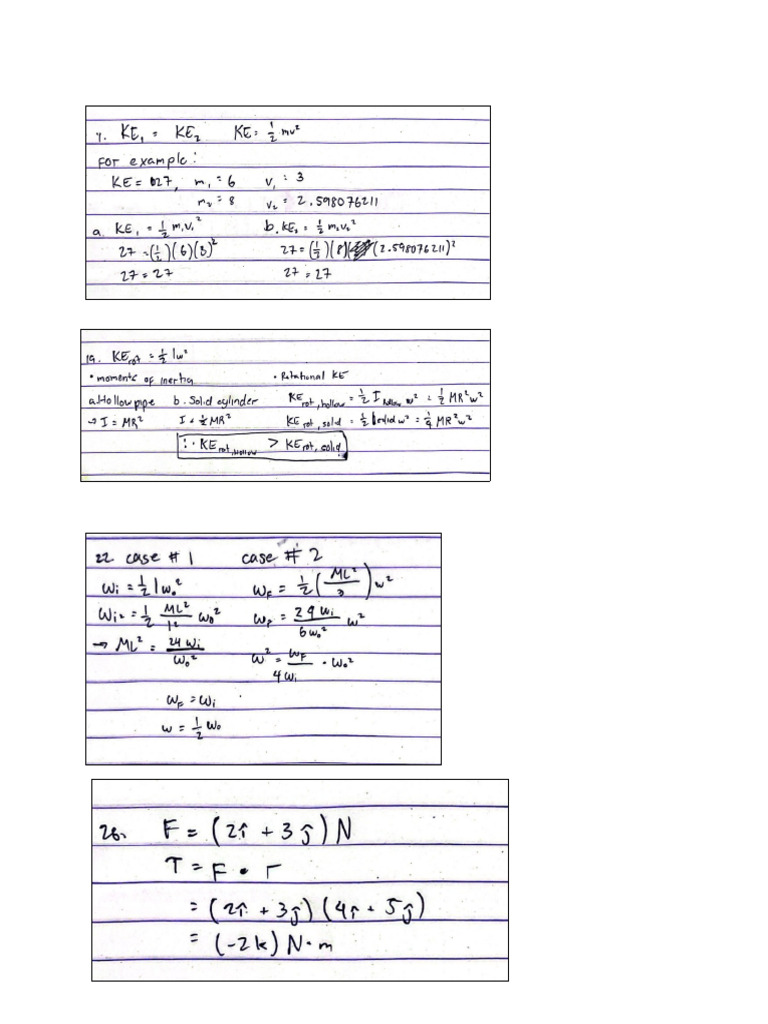 7. KE₁ = KE₂ KE = ½ mv²
For example:
KE = 27, m₁ = 6 v₁ = 3
m₂ = 8 v₂ = 2.598076211
a. KE₁ = ½ m₁v₁² b. KE₂ = ½ m₂v₂²
27 = (½)(6)(3)² 27 = (½)(8)(2.598076211)²
27 = 27 27 = 27
19. KE rot = ½ Iw²
• moments of inertia • Rotational KE
a. Hollow pipe b. Solid cylinder KE rot, hollow = ½ I hollow w² = ½ MR²w²
→ I = MR² I = ½ MR² KE rot, solid = ½ I solid w² = ¼ MR²w²
∴ KE rot, Hollow > KE rot, solid
22 case # 1 case # 2
ωi = ½ Iω₀² ωF = ½ (ML²/3) ω²
ωi = ½ ML²/12 ω₀² ωF = 24ωi/6ω₀² ω²
→ ML² = 24ωi/ω₀² ω² = ωF/4ωi • ω₀²
ωF = ωi
ω = ½ ω₀
26. F = (2î + 3ĵ) N
T = F • r
= (2î + 3ĵ) (4î + 5ĵ)
= (-2k) N•m